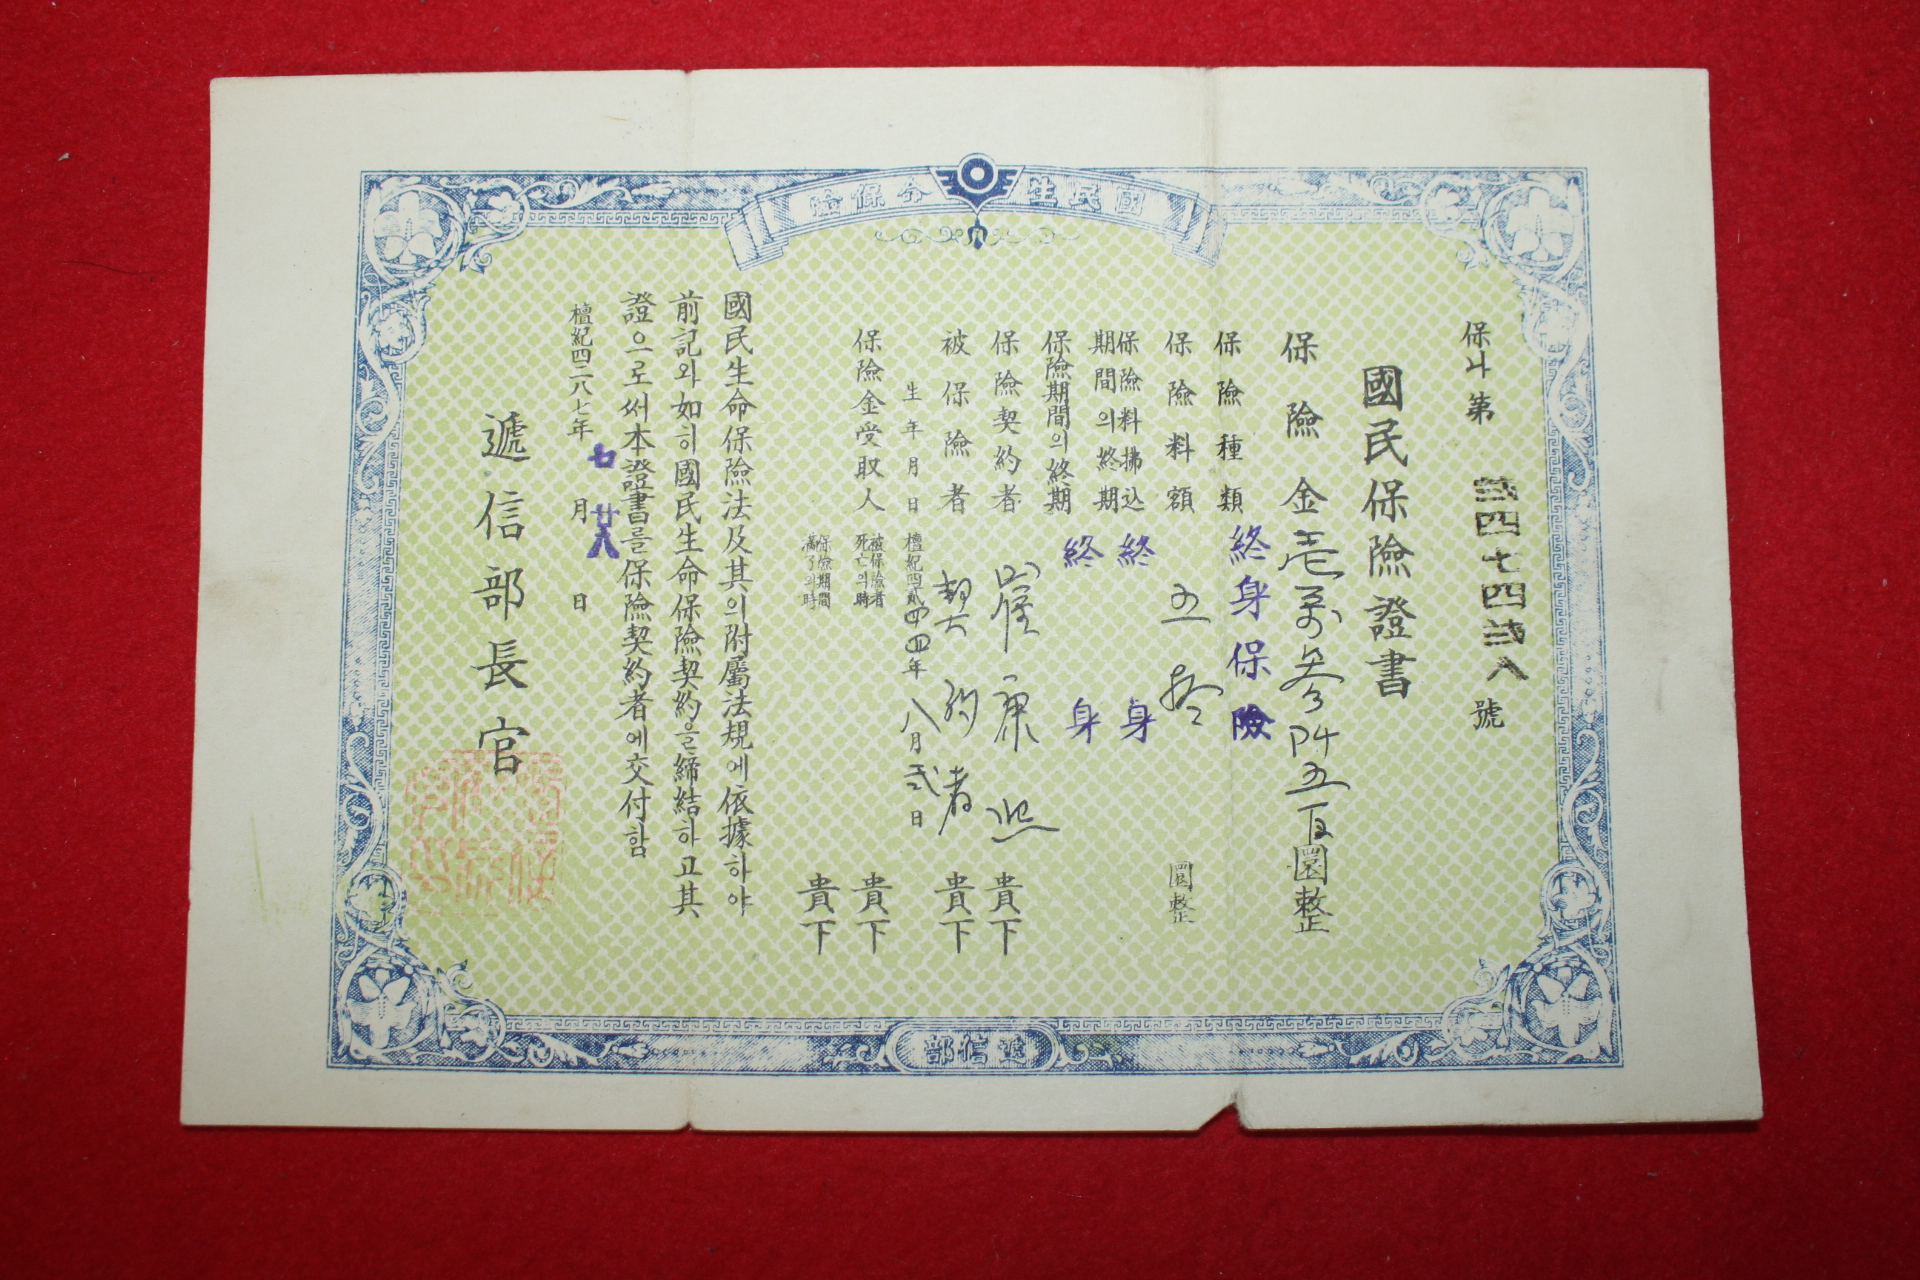 國民生命保險
保사第 貳四七四貳八 號
國民保險證書
保險金 壱萬參阡五百圜整
保險種類 終身保險
保險料額 五拾 圜整
保險料拂込期間의終期 終身
保險期間의終期 終身
保險契約者 崔康熙 貴下
被保險者 契約者 貴下
生年月日 檀紀四貳四四年八月貳日
保險金受取人 被保險者死亡의時 貴下
保險期間滿了의時 貴下
國民生命保險法及其의附屬法規에依據하야
前記와如히國民生命保險契約을締結하고其
證으로써本證書를保險契約者에交付함
檀紀四二八七年 七 月 廿八 日
遞信部長官
遞信部